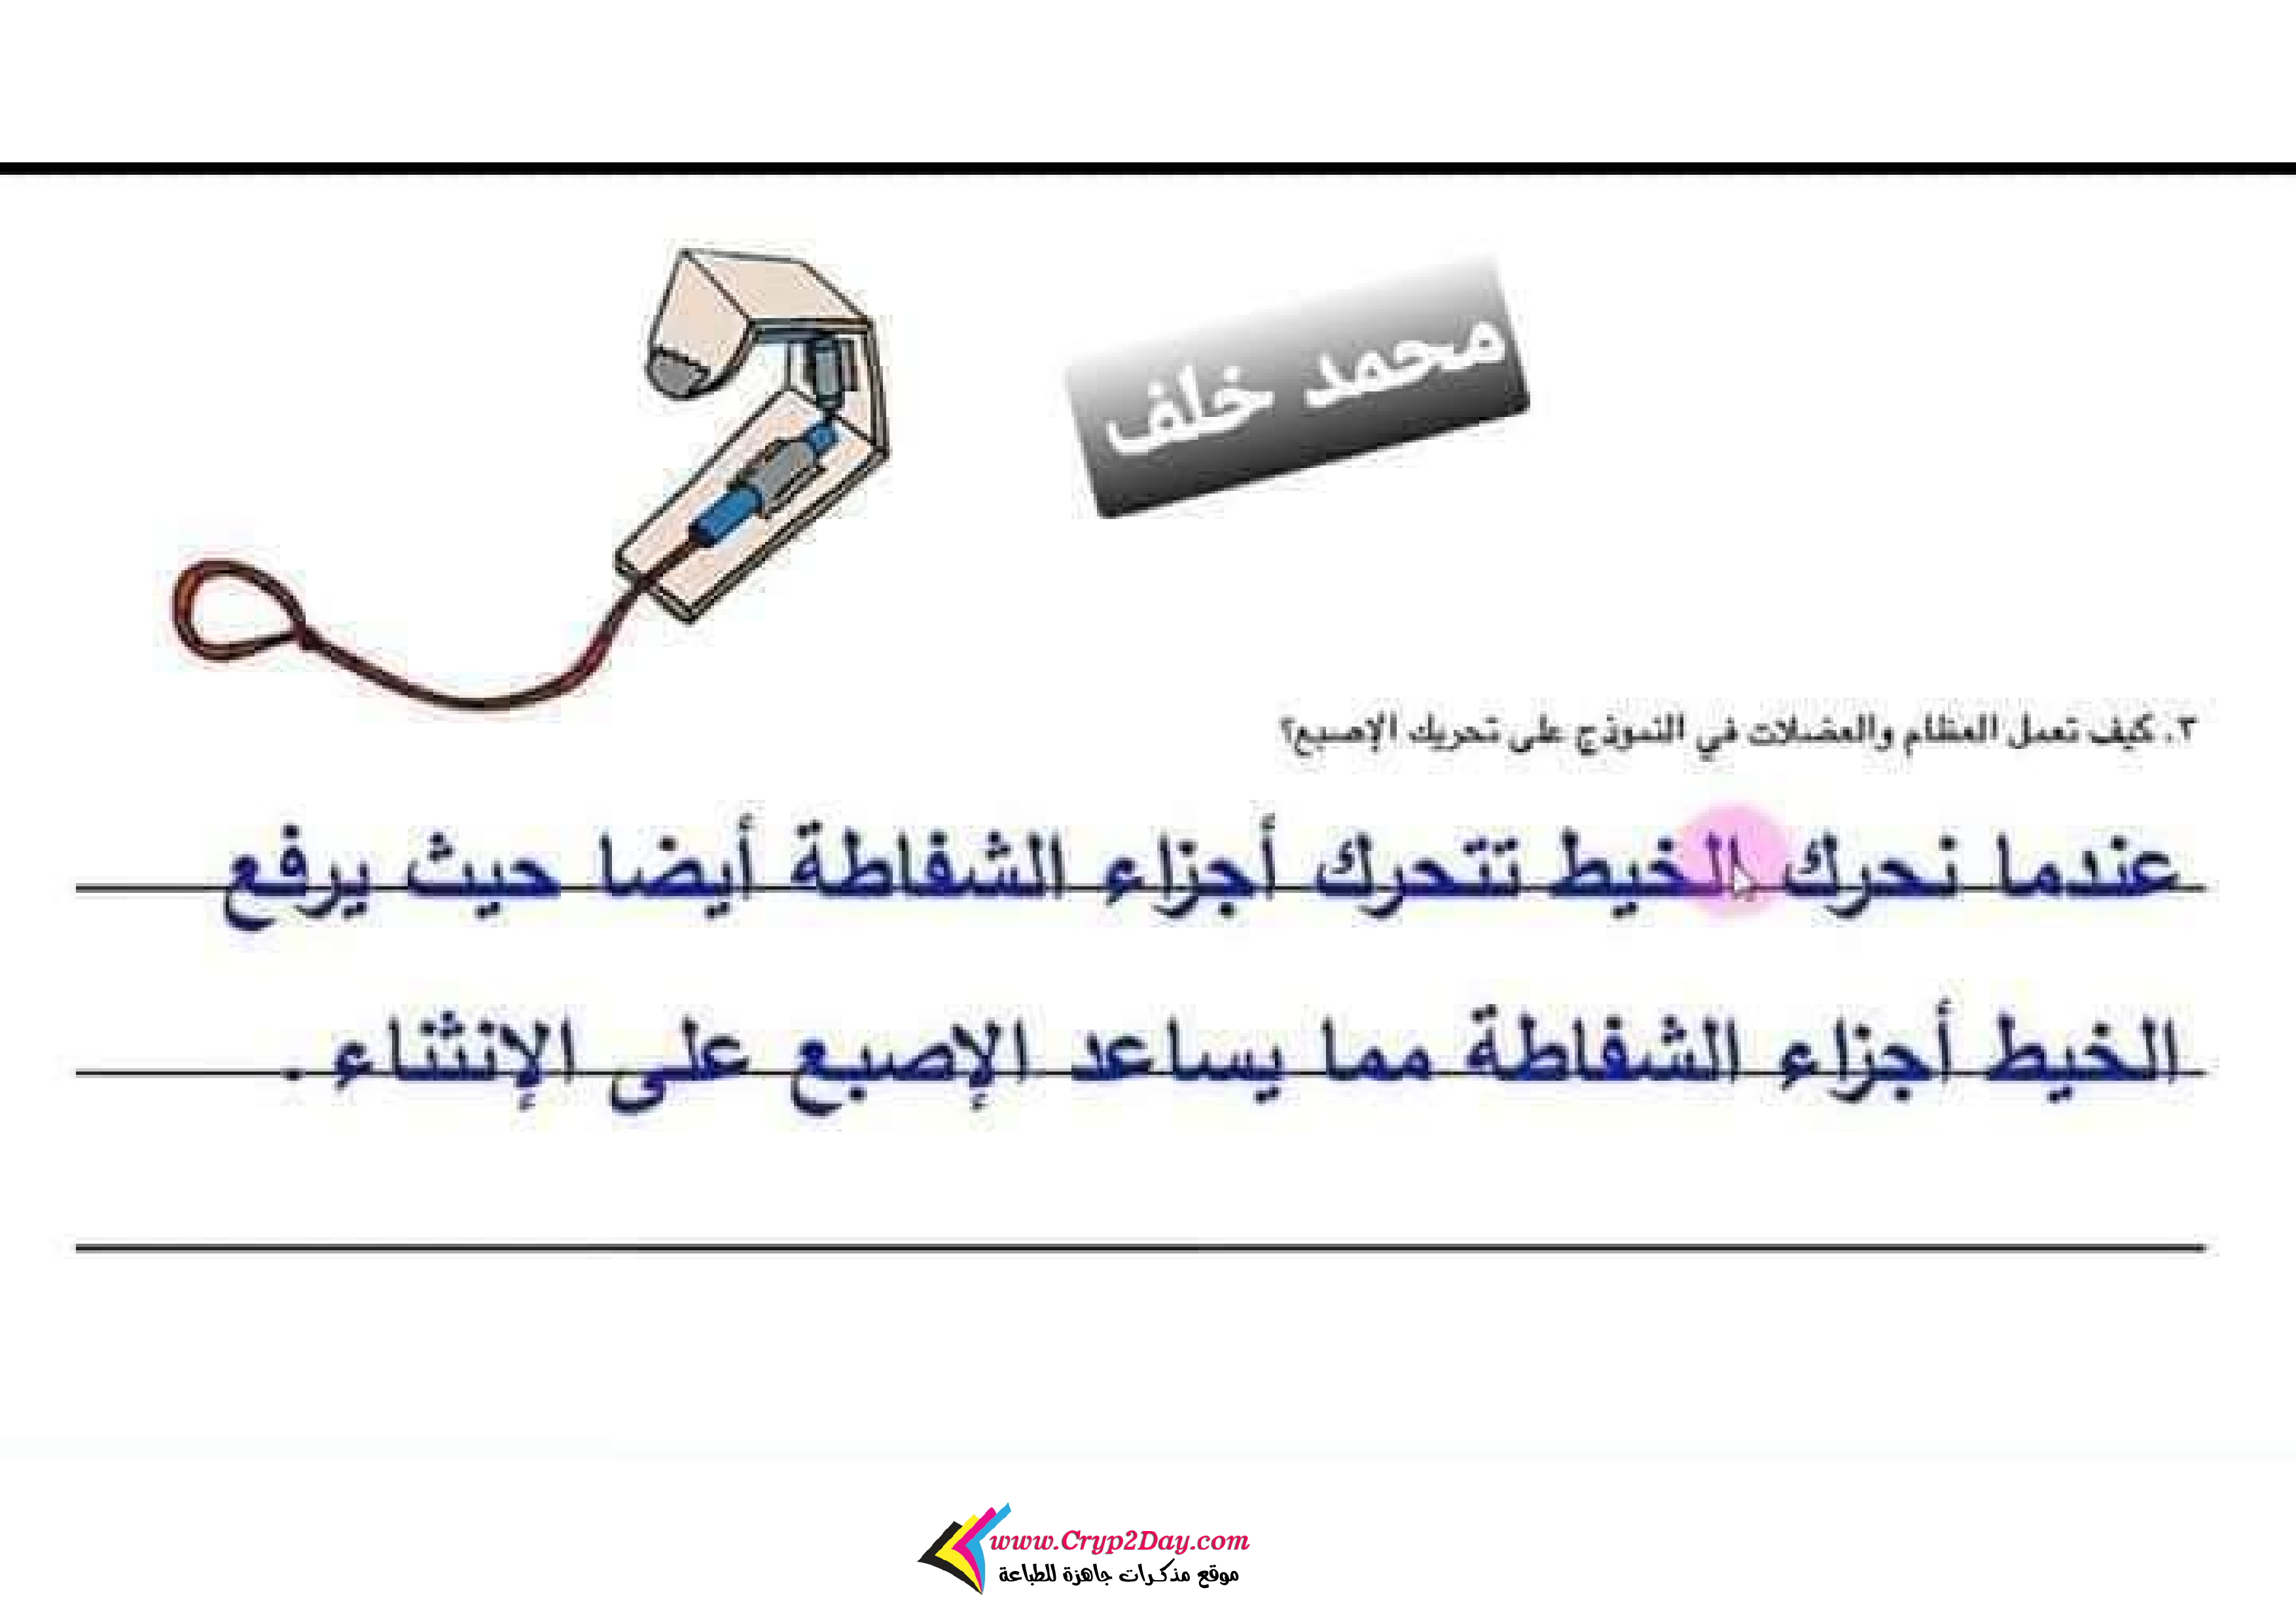 محمد خلف
٣. كيف تعمل العظام والعضلات في النموذج على تحريك الإصبع؟
عندما نحرك الخيط تتحرك أجزاء الشفاطة أيضا حيث يرفع
الخيط أجزاء الشفاطة مما يساعد الإصبع على الإنثناء .
www.Cryp2Day.com
موقع مذكرات جاهزة للطباعة